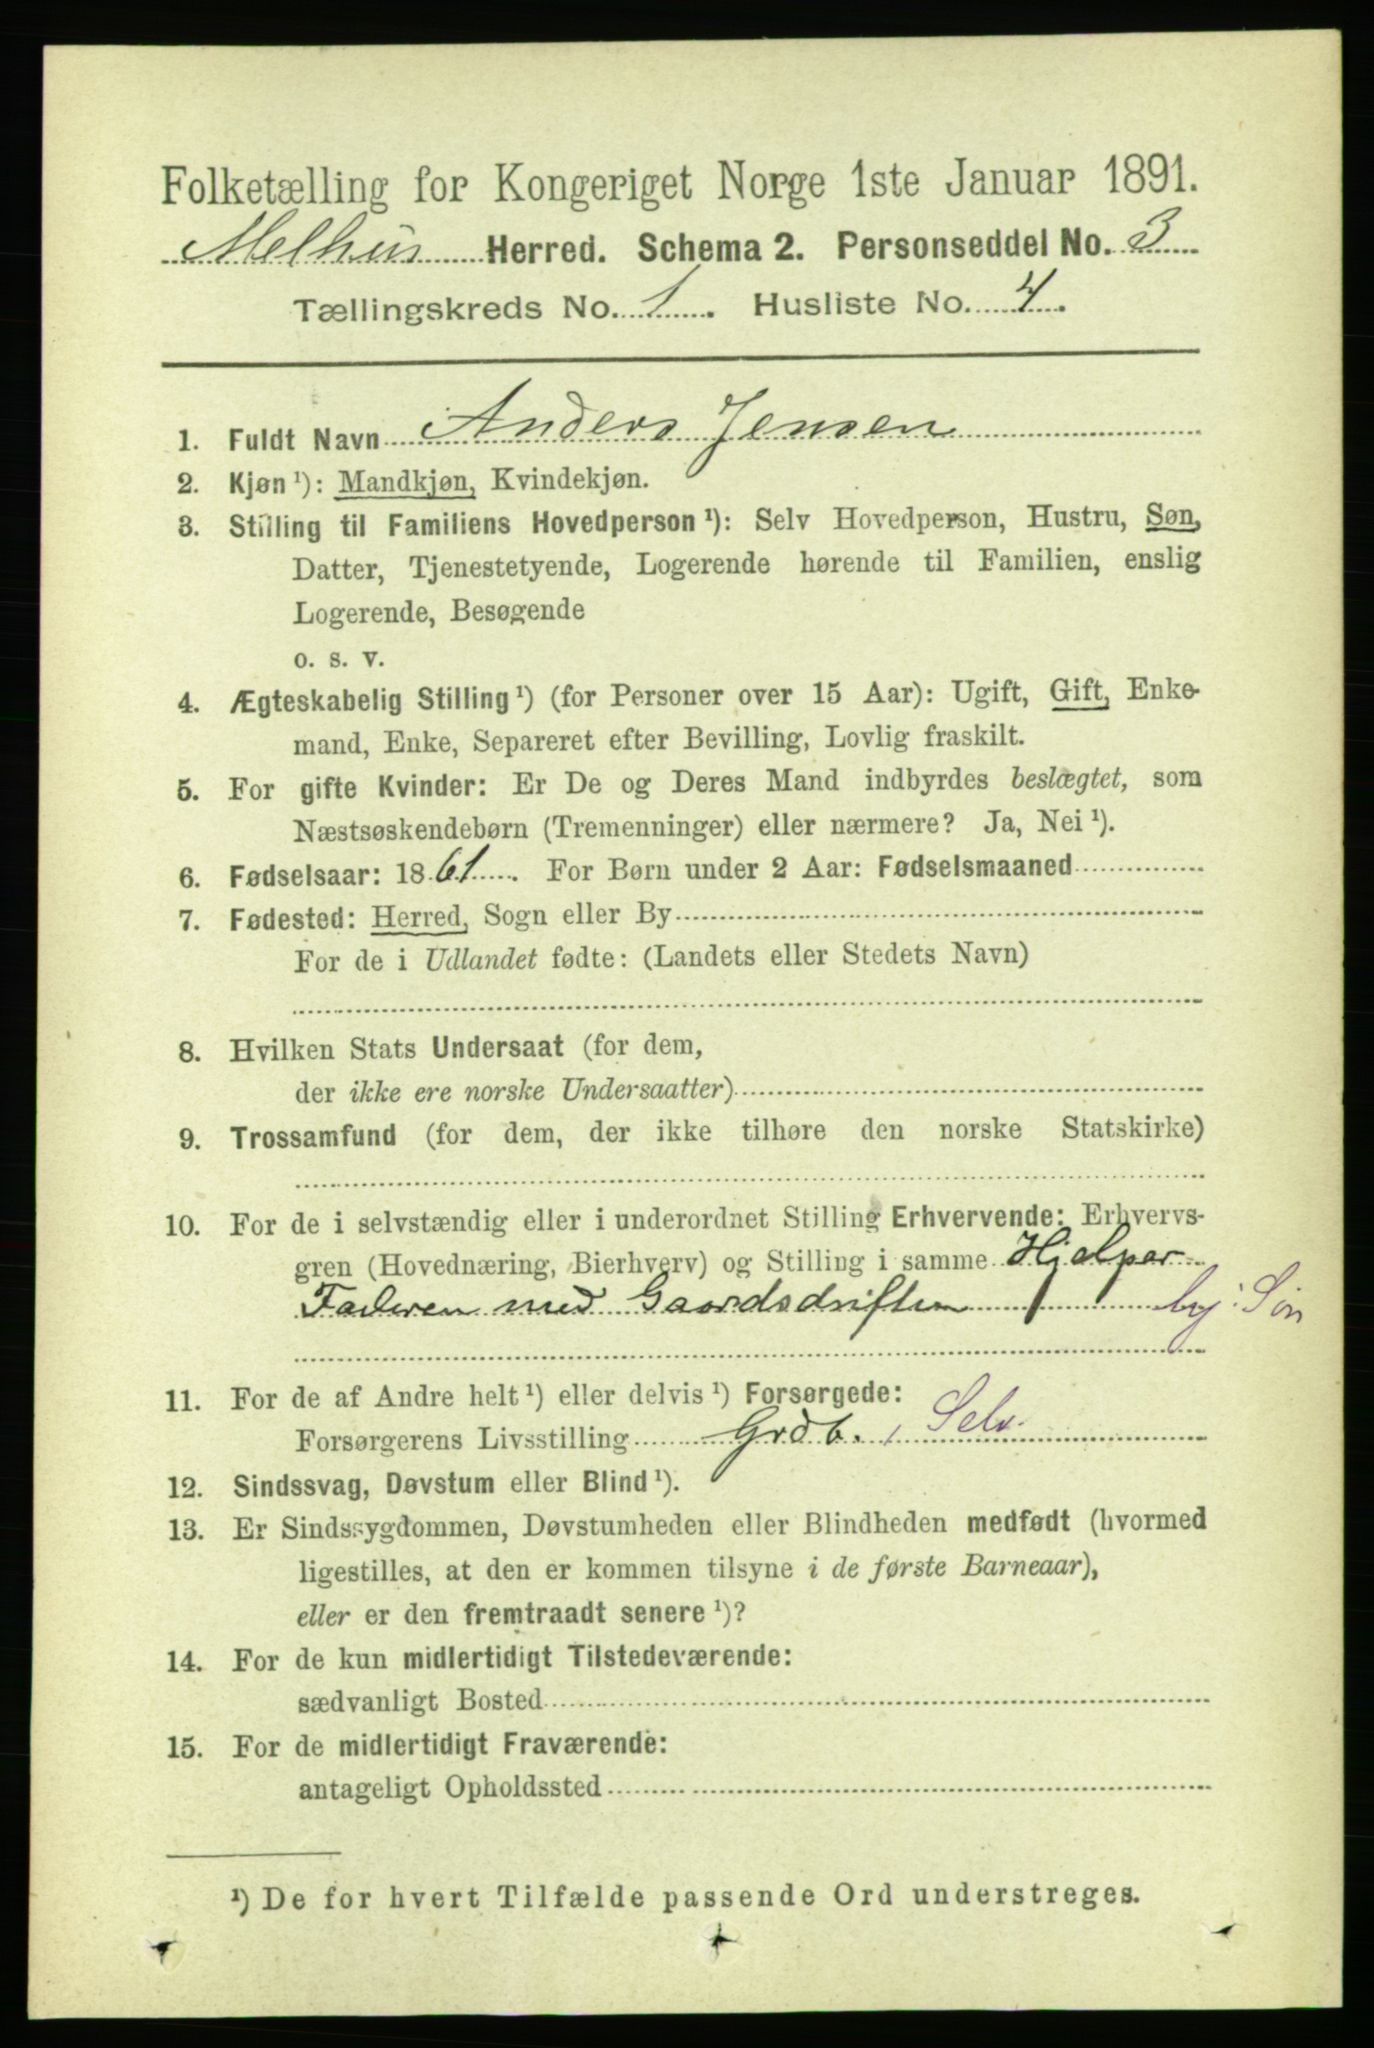 Folketælling for Kongeriget Norge 1ste Januar 1891.
Melhus Herred. Schema 2. Personseddel No. 3
Tællingskreds No. 1. Husliste No. 4.
1. Fuldt Navn Anders Jensen
2. Kjøn¹): Mandkjøn, Kvindekjøn.
3. Stilling til Familiens Hovedperson¹): Selv Hovedperson, Hustru, Søn,
Datter, Tjenestetyende, Logerende hørende til Familien, enslig
Logerende, Besøgende
o. s. v.
4. Ægteskabelig Stilling¹) (for Personer over 15 Aar): Ugift, Gift, Enke-
mand, Enke, Separeret efter Bevilling, Lovlig fraskilt.
5. For gifte Kvinder: Er De og Deres Mand indbyrdes beslægtet, som
Næstsøskendebørn (Tremenninger) eller nærmere? Ja, Nei¹).
6. Fødselsaar: 1861. For Børn under 2 Aar: Fødselsmaaned
7. Fødested: Herred, Sogn eller By
For de i Udlandet fødte: (Landets eller Stedets Navn)
8. Hvilken Stats Undersaat (for dem,
der ikke ere norske Undersaatter)
9. Trossamfund (for dem, der ikke tilhøre den norske Statskirke)
10. For de i selvstændig eller i underordnet Stilling Erhvervende: Erhvervs-
gren (Hovednæring, Bierhverv) og Stilling i samme Hjelper
Faderen med Gaardsdriften Søn
11. For de af Andre helt¹) eller delvis¹) Forsørgede:
Forsørgerens Livsstilling Grdb., Selv.
12. Sindssvag, Døvstum eller Blind¹).
13. Er Sindssygdommen, Døvstumheden eller Blindheden medfødt (hvormed
ligestilles, at den er kommen tilsyne i de første Barneaar),
eller er den fremtraadt senere¹)?
14. For de kun midlertidigt Tilstedeværende:
sædvanligt Bosted
15. For de midlertidigt Fraværende:
antageligt Opholdssted
¹) De for hvert Tilfælde passende Ord understreges.